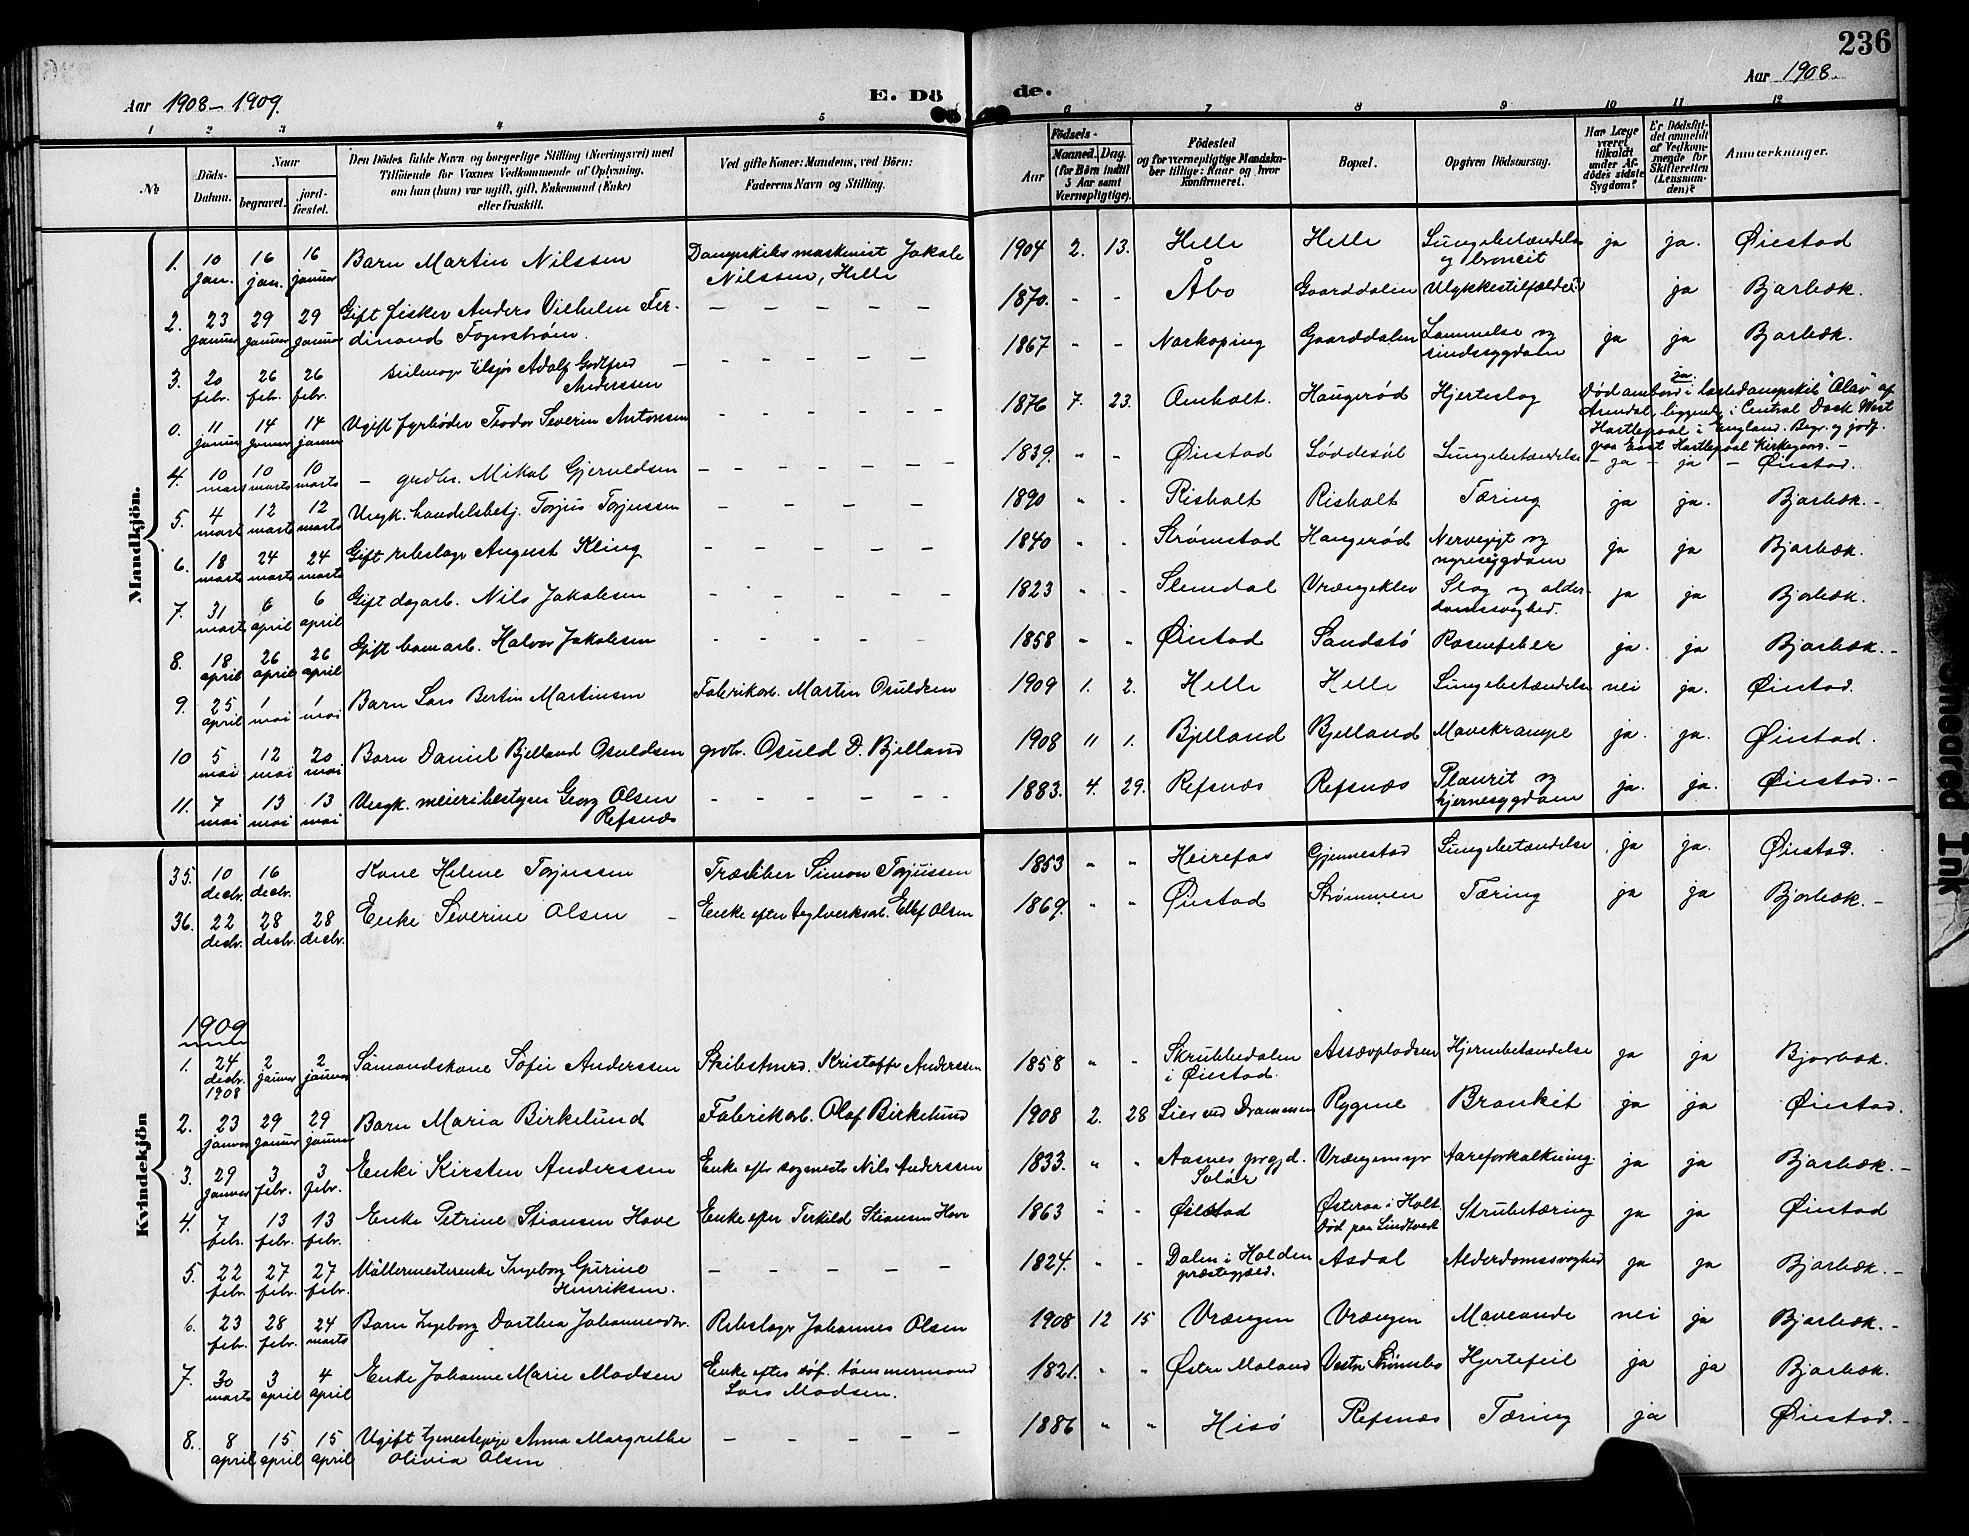 236
Aar 1908 – 1909.
E. Dö
de.
Aar 1908
1 2 3 4 5 6 7 8 9 10 11 12
No
Döds-Datum.
Naar
begravet.
jord-fæstet.
Den Dödes fulde Navn og borgerlige Stilling (Næringsvei) med
Tilföiende for Voxnes Vedkommende af Oplysning,
om han (hun) var ugift, gift, Enkemand (Enke)
eller fraskilt.
Ved gifte Koner: Mandens, ved Börn:
Faderens Navn og Stilling.
Födsels-
Aar
Maaned. Dag.
(for Börn indtil
5 Aar samt
Værnepligtige).
Födested
og for værnepligtige Mandskaber tillige: Naar og hvor
konfirmeret.
Bopæl.
Opgiven Dödsaarsag.
Har Læge
været
tilkaldt
under Afdödes sidste
Sygdom?
Er Dödsfaldet anmeldt
af Vedkommende for
Skifteretten
(Lensmanden)?
Anmærkninger.
Mandkjön.
1. 10 jan. 16 jan. 16 januar Barn Martin Nilssen Dampskibsmaskinist Jakob Nilssen, Helle 1904 2. 13. Helle Helle Lungebetændelse og broncit ja ja. Øiestad
2. 23 januar 29 januar 29 januar Gift fisker Anders Vilhelm Ferdinand – – – – – 1870. - - Åbo Gaarddalen Ulykkestilfælde ja Bjorbæk.
3. 20 febr. 26 febr. 26 febr. Adolf Godtfred Anderssen – – – – – 1867 - - Norkoping Gaarddalen Lammelse og sindssygdom ja ja Bjorbæk.
0. 11 januar 14 januar 14 januar Ugift fyrbøder Teodor Severin Antonsen – – – – – 1876 7. 23. Omholt. Haugerød Hjerteslag ja. Død ombord i lastedampskib "Olav" af
Arendal, liggende i Central Dock West
Hartlepool i England. Begr. og jordf.
paa East Hartlepool Kirkegaard. –
4. 10 mars 10 marts 10 marts – grdbr. Mikal Gjeruldsen – – – – – – 1839. " - Øiestad Løddesøl Lungebetændelse – ja – ja – Øiestad.
5. 4 mart 12 marts 12 marts Ungk. handelsbetj. Torjus Torjussen – – – – – 1890 " - Risholt Risholt Tæring ja ja. Bjorbæk. –
6. 18 marts 24 marts 24 marts Gift rebslager August Kling – – – – – 1840 " - Strømstad Haugerød Nervegigt og nyresygdom ja ja Bjorbæk.
7. 31 marts 6 april 6 april Gift dagarb. Nils Jakobsen – – – – – 1823 " - Slemdal Vrængeklev Slag og alderdomssvaghed. ja ja Bjorbæk.
8. 18 april 26 april 26 april Gift bomarb. Halvor Jakobsen – – – – – 1858 " " Øiestad Sandstø Rosenfeber ja. ja Bjorbæk. –
9. 25 april 1 mai 1 mai Barn Lars Bertin Martinsen Fabrikarb. Martin Osuldsen 1909 1. 2. Helle Helle Lungebetændelse nei ja. Øiestad.
10 5 mai 12 mai 20 mai Barn Daniel Bjelland Osuldsen grdb. Osuld D. Bjelland 1908 11 1. Bjelland Bjelland Mavekrampe ja. ja. Øiestad.
11. 7 mai 13 mai 13 mai Ungk. meieribestyrer Georg Olsen Refsnæs – – – – – – 1883. 4. 29. Refsnæs Refsnæs Pleurit og hjernesygdom ja. ja. Øiestad. –
Kvindekjön
35. 10 decbr. 16 decbr. Kone Helene Torjussen Simon Torjussen 1853 " " Heirefos Gjennestad Lungebetændelse ja ja. Øiestad.
36. 22 decbr. 28 decbr. 28 decbr. Enke Severine Olsen – Enke efter teglverksarb. Ellef Olsen 1869. " " Øiestad Strømmen Tæring ja ja Bjorbæk. –
1909
1. 24 decbr. 1908 2 januar 2 januar Sømandskone Sofie Anderssen Skibstmrd. Kristoffer Anderssen 1858 " - Skrubbedalen i Øiestad. Assævpladsen Hjernebetændelse ja ja Bjorbæk.
2. 23 januar 29 januar 29 januar Barn Maria Birkelund Fabrikarb. Olaf Birkelund 1908 2. 28 Lier ved Drammen Rygene Bronkit ja ja Øiestad.
3. 29 januar 3 febr. 3 febr. Enke Kirsten Anderssen Enke efter sagmester Nils Anderssen 1833. " " Aasnes prgjd. Solør Vrængemyr Aareforkalkning. ja ja Bjorbæk. –
4. 7 febr. 13 febr. 13 febr. Enke Petrine Stiansen Hove Enke efter Terkild Stiansen Hove 1863 " " Øiestad Østeraa i Holt. Død paa Lindtveit Strubetæring ja ja Øiestad
5. 22 febr. 27 febr. 27 febr. Møllermesterenke Ingeborg Gurine Henriksen. – – – – – 1824. " - Dalen i Holden præstegjæld. Asdal Alderdomssvaghed ja ja Bjorbæk. –
6. 23 febr. 28 febr. 24 marts Barn Ingeborg Dorthea Johannesdtr. Rebslager Johannes Olsen 1908 12 15 Vrængen Vrængen Maveonde nei ja Bjorbæk. –
7. 30 marts 3 april 4 april Enke Johanne Marie Madsen Enke efter tømmermand Lars Madsen. 1821. " " Østre Moland Vestre Strømsbo Hjertefeil ja ja Bjorbæk.
8. 8 april 15 april 15 april Ugift tjenestepige Anna Margrethe Olivia Olsen – – – – – 1886 " " Hisø Refsnæs Tæring ja Øiestad. –
Ink